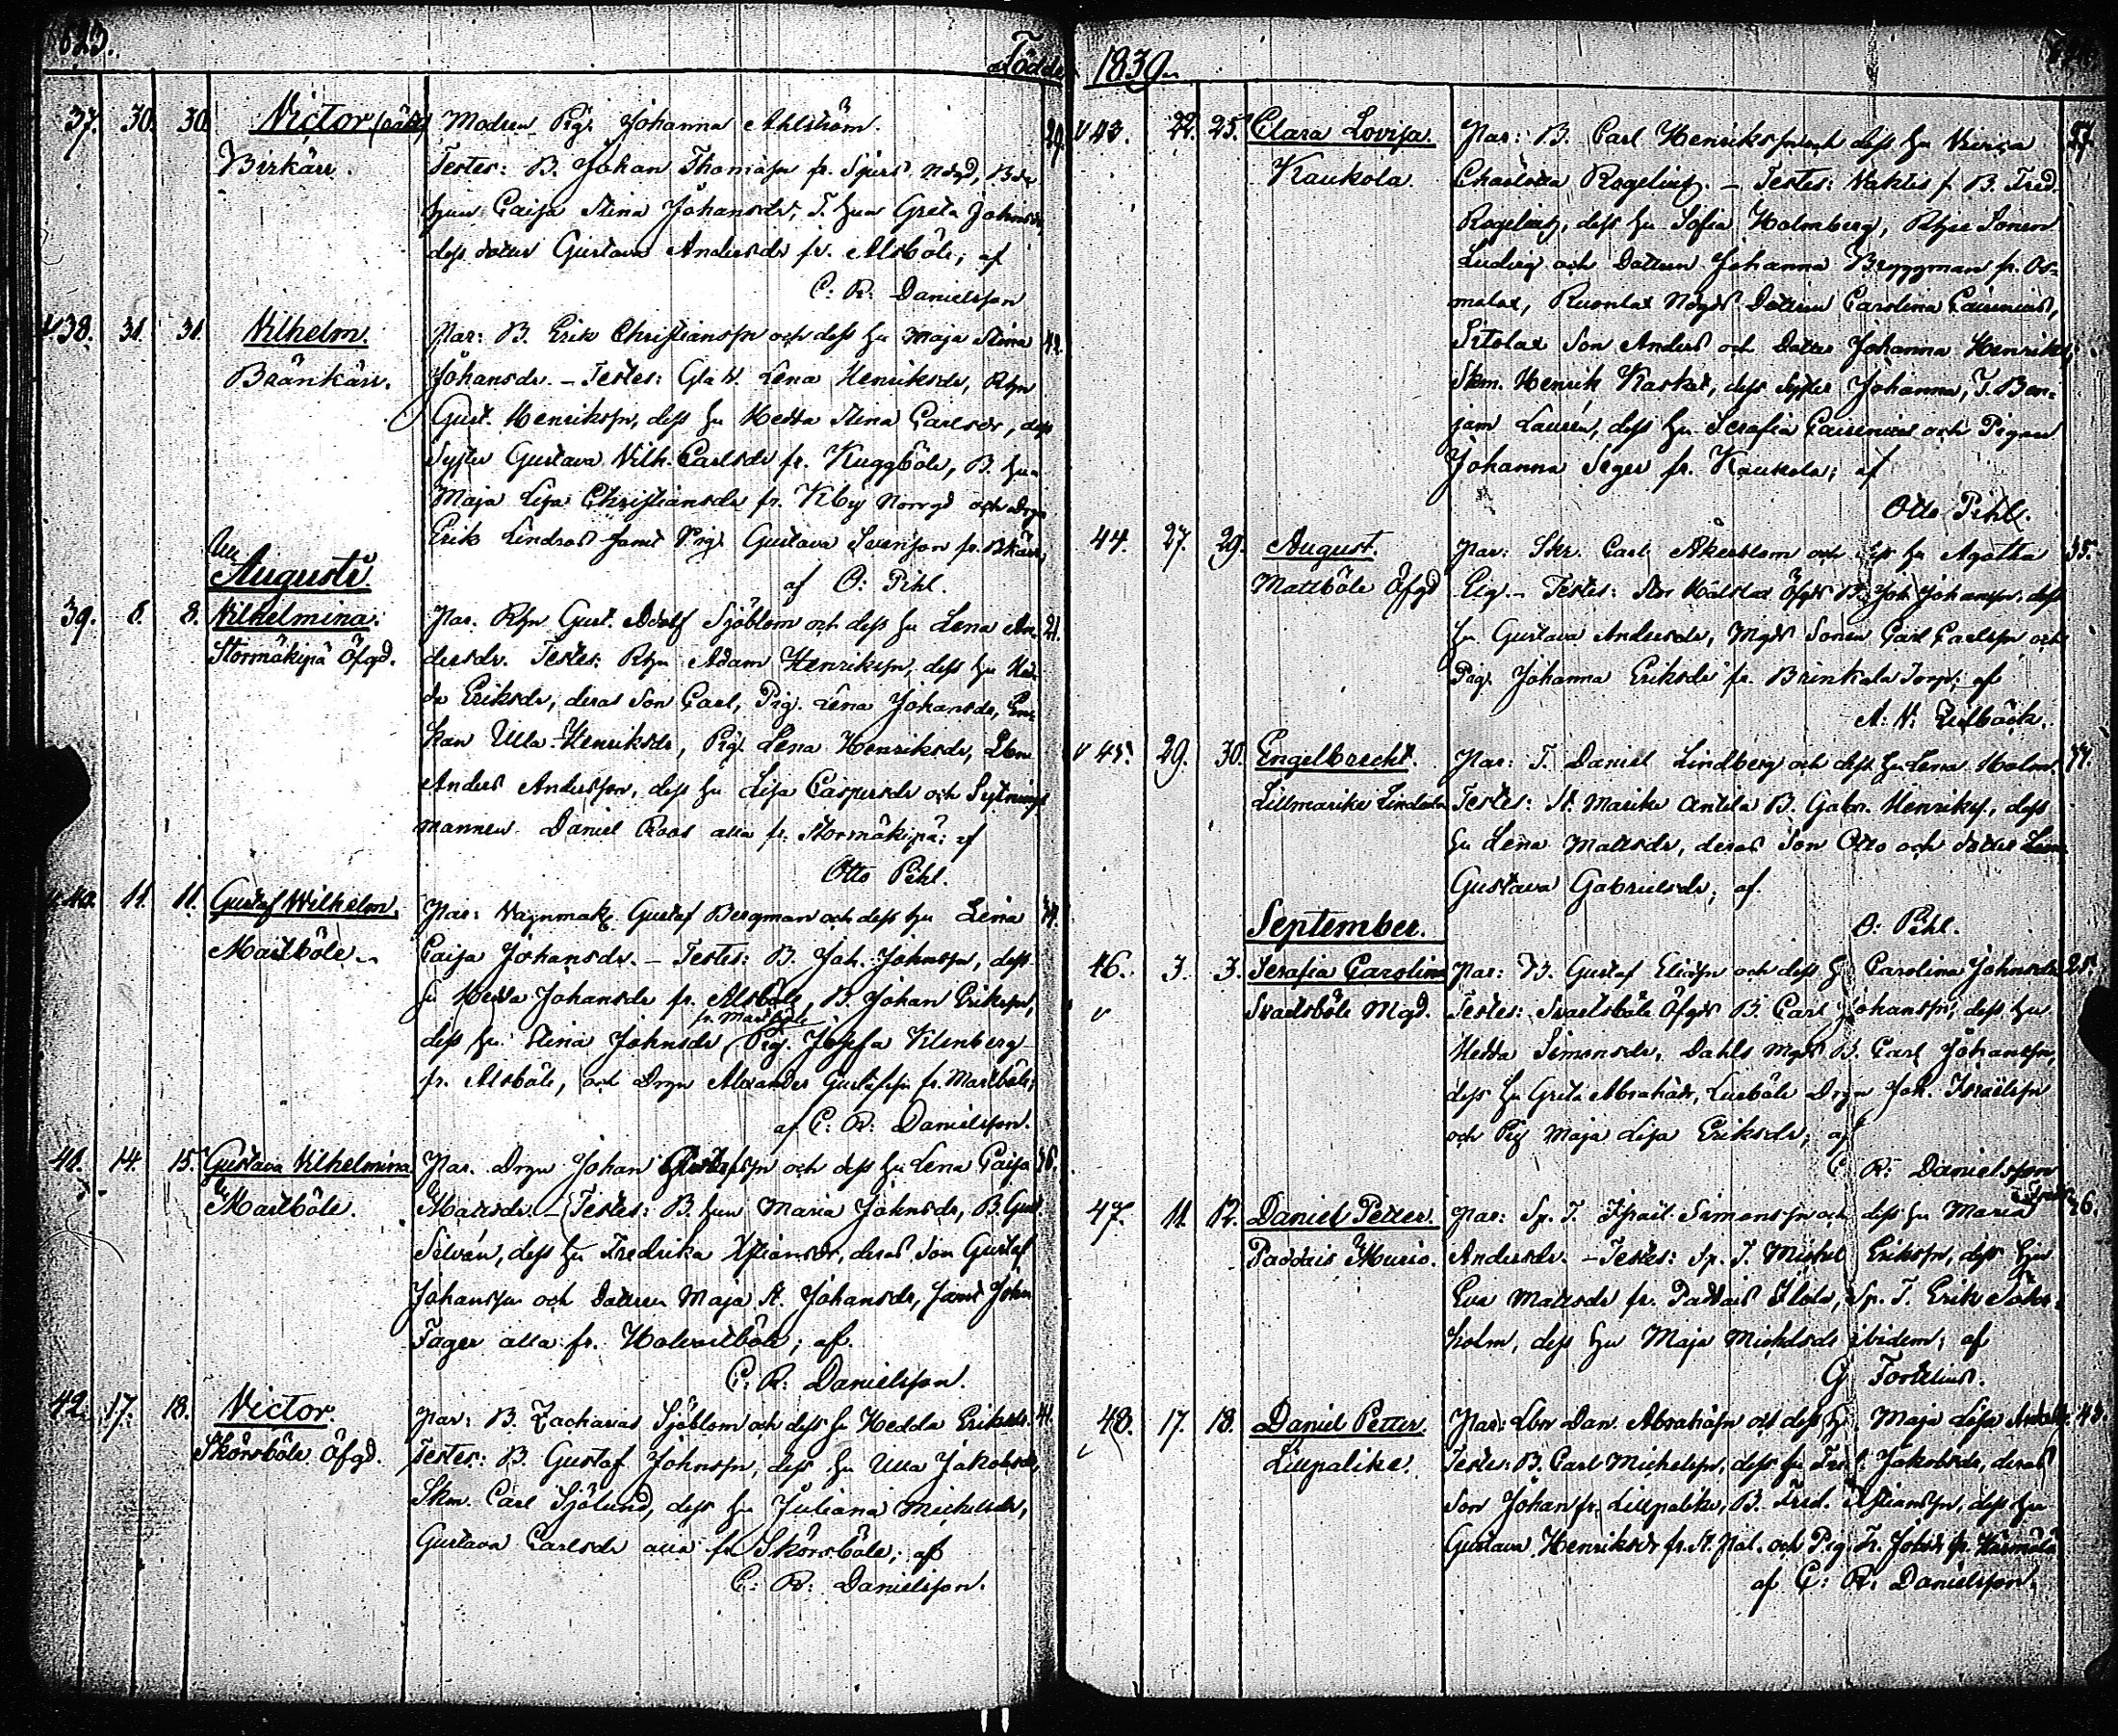 623.
Födde
37. 30. 30. Victor (oäkta) Modren Pig. Johanna Ahlström. 29.
Birkärr. Testes: B. Johan Thomasson fr. Norrgd, Bde
hust. Caisa Stina Johansdr, T. hust. Greta Johansdr,
dess dotter Gustava Andersdr fr. Alsböle; af
C: R: Danielsson
38. 31. 31. Vilhelm. Par: B. Erik Christiansson och dess hu Maja Stina 42.
Bränkärr. Johansdr. – Testes: Lena Henriksdr, Rhn
Gust. Henriksson, dess hu Hedda Stina Carlsdr, dess
Syster Gustava Vilh. Carlsdr fr. Kuggböle, B. hun
Maja Lisa Christiansdr fr. Kby Norrgd och Drgn
Erik Lindroos samt Pig. Gustava Svensson fr. Bkärr,
af O: Pihl.
Augusti
39. 8. 8. Vilhelmina. Par. Rhn Gust. Adolf Sjöblom och dess hu Lena An- 21.
Stormäkipä Öfgd. dersdr. Testes: Rhn Adam Henriksson, dess hu Hed-
da Eriksdr, deras Son Carl, Pig. Lena Johansdr, En-
kan Ulla Henriksdr, Pig. Lena Henriksdr, Lbn
Anders Andersson, dess hu Lisa Caspersdr och Sytnings
mannen Daniel Roos alla fr. Stormäkipä; af
Otto Pihl.
40. 11. 11. Gustaf Wilhelm. Par: Vagnmak. Gustaf Bergman och dess hu Lena 34.
Martböle. Caisa Johansdr. – Testes: B. Joh. Johnsson, dess
hu Hedda Johansdr fr. Alsböle, B. Johan Eriksson,
fr. Martböle
dess hu Stina Johnsdr, Pig. Josefa Klinberg
fr. Alsböle, och Drgn Alexander Gustafsson fr. Martböle;
af C: R: Danielsson.
41. 14. 15. Gustava Vilhelmina Par. Drgn Johan Gustafsson och dess hu Lena Caisa 36.
Martböle. Mattsdr. – Testes: B. hun Maria Johnsdr, B. Gust.
Selvén, dess hu Fredrika Xstiansdr, deras Son Gustaf
Johansson och Dottren Maja St. Johansdr, samt John
Fager alla fr. Holvastböle; af
C: R: Danielsson.
42. 17. 18. Victor. Par: B. Zacharias Sjöblom och dess hu Hedda Eriksdr. 41.
Skörsböle Öfgd. Testes: B. Gustaf Johnsson, dess hu Ulla Jakobsdr,
Skm. Carl Sjölund, dess hu Juliana Michelsdr,
Gustava Carlsdr alla fr Skörsböle; af
C: R: Danielsson.
1839.
43. 22. 25. Clara Lovisa. Par: B. Carl Henriksson och dess hu Ulrica 27.
Kaukola. Charlotta Rogelin. – Testes: B. Fred.
Rogelin, dess hu Sofia Holmberg, Sonen
Ludvig och Dottren Johanna Bryggman fr. Os-
malax, Ruonlax Nörgds Dottren Carolina Cairenius,
Sitolax Son Anders och Dotter Johanna Henriks,
Skm. Henrik Kasket, dess Syster Johanna, T. Ben-
jam Laurén, dess hu Serafia Cairenius och Pigan
Johanna Seger fr. Kaukola; af
Otto Pihl.
44. 27. 29. August. Par: Skr. Carl Åkerblom och dess hu Agatha 35.
Mattböle Öfgd Elg. – Testes: Öfgds B. Joh. Johansson, dess
hu Gustava Andersdr, Mgds Sonen Carl Carlsson och
Pig. Johanna Eriksdr fr. Brinkala Torp; af
A: W:
45. 29. 30. Engelbrecht. Par: T. Daniel Lindberg och dess hu Lena Holm. 44.
Lillmarike Testes: St. Marike Antila B. Gabr. Henrikss., dess
hu Lena Mattsdr, deras Son Otto och dotter
Gustava Gabrielsdr; af
O: Pihl.
September.
46. 3. 3. Serafia Carolina Par: B. Gustaf Eliasson och dess hu Carolina Johnsdr 25.
Svartsböle Mgd. Testes: Svartsböle Öfgds B. Carl Johansson, dess hu
Hedda Simonsdr, Dahls Mgds B. Carl Johansson,
dess hu Greta Abrahdr, Lurböle Drgn Joh. Israelsson
och Pig Maja Lisa Eriksdr; af
C: R: Danielsson
47. 11. 12. Daniel Petter. Par: Sp. T. Israil Simonsson och dess hu Maria 26.
Paddais Murio. Andersdr. – Testes: Sp. T. Michel Eriksson, dess hu
Eva Mattsdr fr. Paddais Ylola, Sp. T. Erik Söder-
holm, dess hu Maja Michelsdr ibidem; af
G Fortelius.
48. 17. 18. Daniel Petter. Par: Lbn Dan. Abrahasn och dess hu Maja Lisa 43.
Lillpalike. Testes: B. Carl Michelsson, dess hu Fred. Jakobsdr, deras
Son Johan fr. Lillpalike, B. Fred. Xstiansson, dess hu
Gustava Henriksdr fr. St. Pal. och Pig. Fr. Johsdr fr.
af C: R: Danielsson.